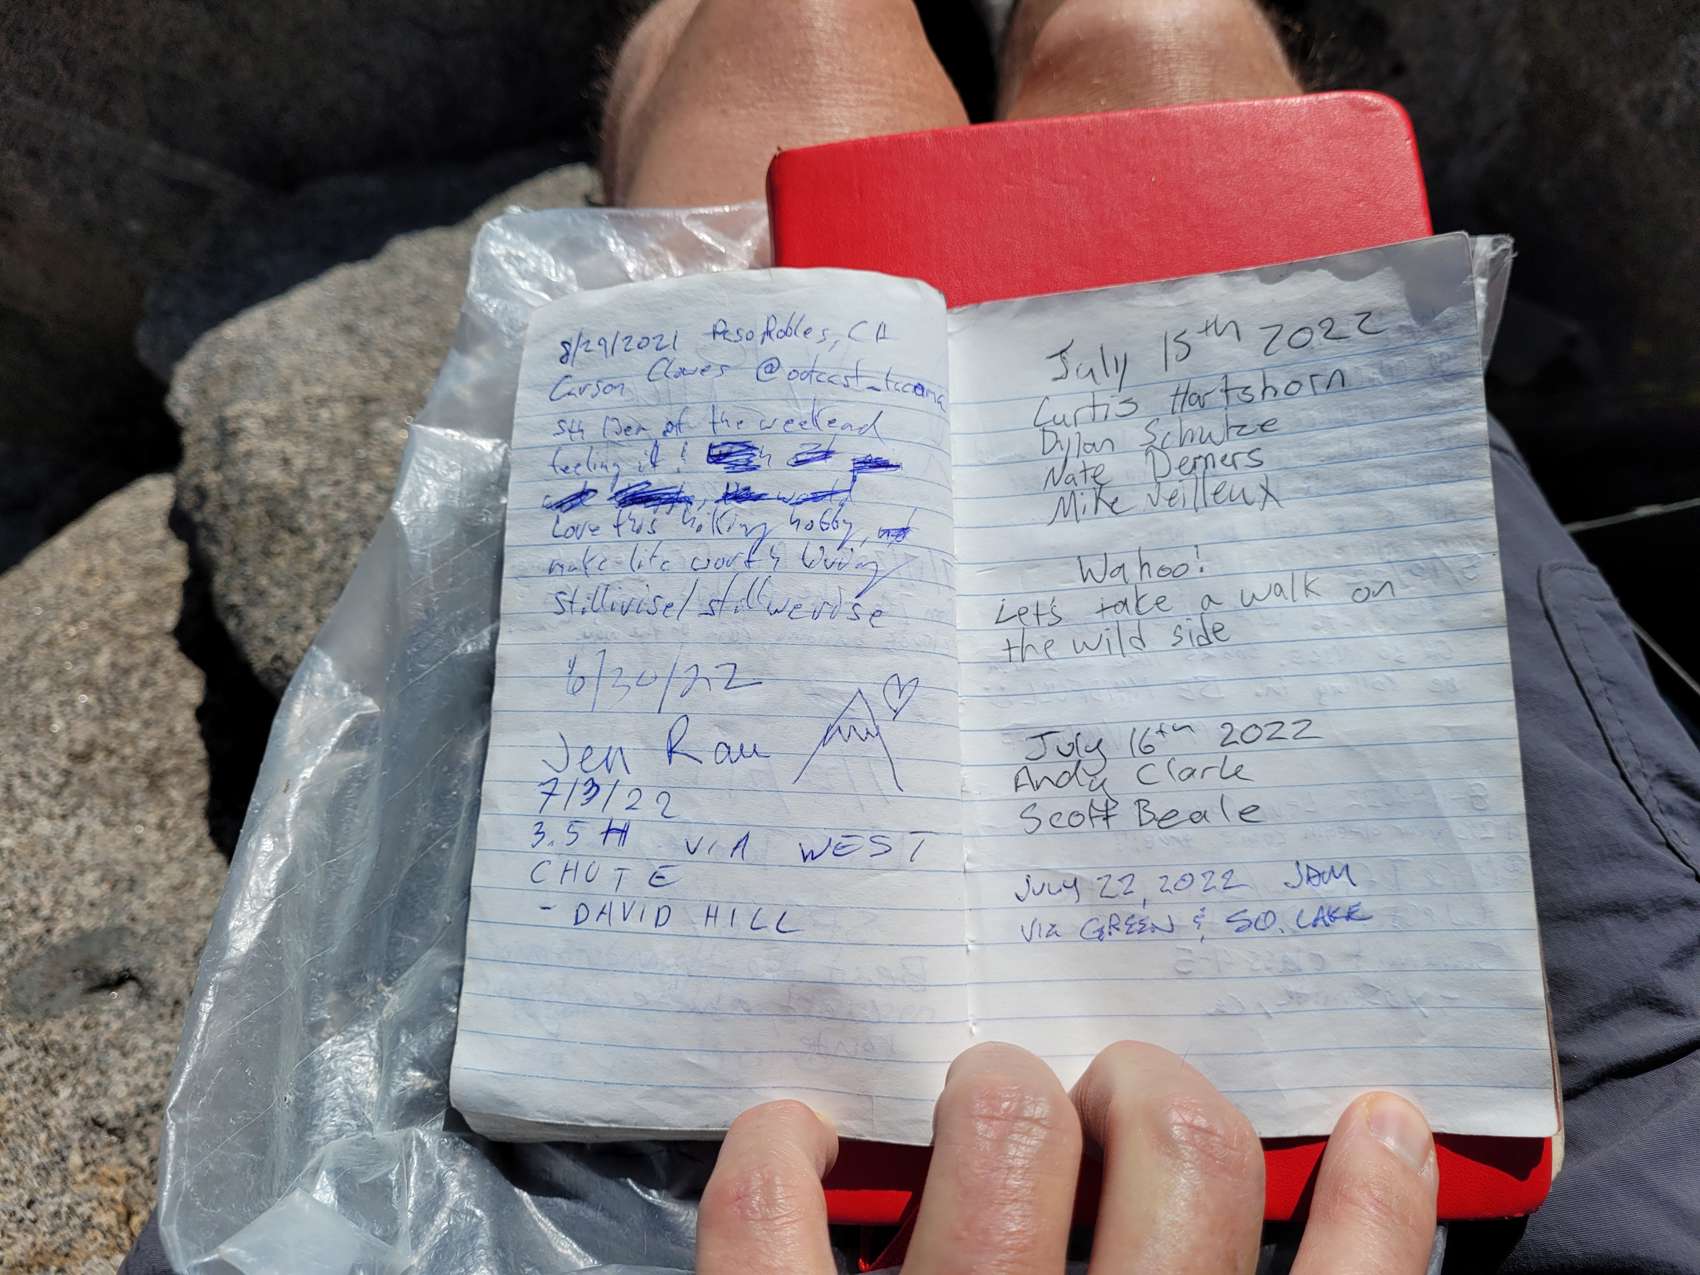 8/29/2021 Paso Robles, CA
Carson Clowes @outcast_tacoma
5th Peak of the weekend
feeling it!
Love this hiking hobby,
make life worth living
stillirise/stillwerise
6/30/22
Jen Rau
7/3/22
3.5 H VIA WEST
CHUTE
- DAVID HILL
July 15th 2022
Curtis Hartshorn
Dylan Schutze
Nate Demers
Mike Veilleux
Wahoo!
Let's take a walk on
the wild side
July 16th 2022
Andy Clark
Scott Beale
July 22, 2022 JAM
via GREEN & SO. LAKE